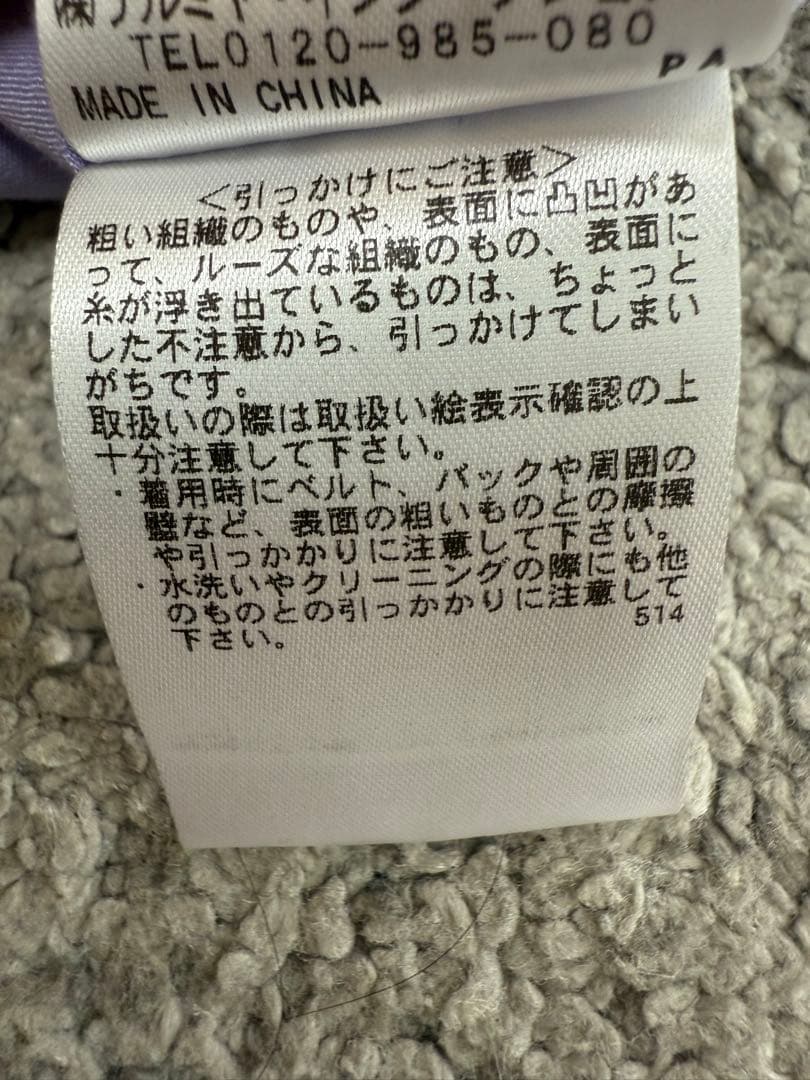 TEL0120-985-080
MADE IN CHINA
PA
<引っかけにご注意>
粗い組織のものや、表面に凸凹があ
って、ルーズな組織のもの、表面に
糸が浮き出ているものは、ちょっと
した不注意から、引っかけてしまい
がちです。
取扱いの際は取扱い絵表示確認の上
十分注意して下さい。
・着用時にベルト、バックや周囲の
壁など、表面の粗いものとの摩擦
や引っかかりに注意して下さい。
・水洗いやクリーニングの際にも他
のものとの引っかかりに注意して
下さい。
514